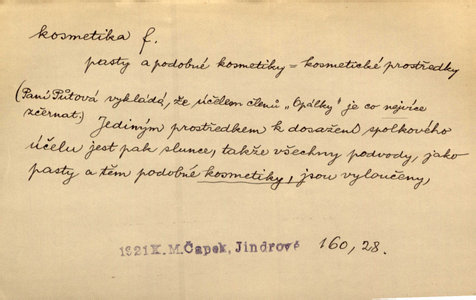 kosmetika f.
pasty a podobné kosmetiky = kosmetické prostředky
(Paní Půtová vykládá, že účelem členů „Opálky" je co nejvíce
zčernat.) Jediným prostředkem k dosažení spolkového
účelu jest pak slunce, takže všechny podvody, jako
pasty a těm podobné kosmetiky, jsou vyloučeny,
1921 K. M. Čapek, Jindrové 160, 28.